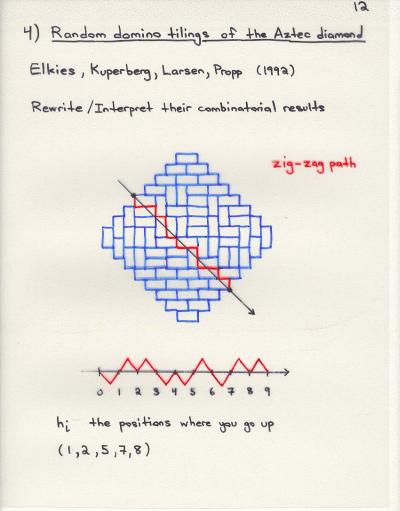 12
4) Random domino tilings of the Aztec diamond
Elkies, Kuperberg, Larsen, Propp (1992)
Rewrite/Interpret their combinatorial results
zig-zag path
0 1 2 3 4 5 6 7 8 9
hi the positions where you go up
(1,2,5,7,8)